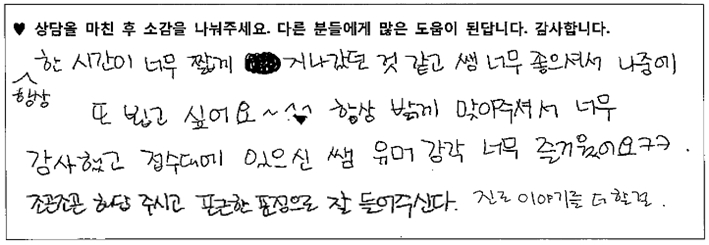 ♥ 상담을 마친 후 소감을 나눠주세요. 다른 분들에게 많은 도움이 된답니다. 감사합니다.
한 시간이 너무 짧게 지나갔던 것 같고 쌤 너무 좋으셔서 나중에
항상
또 뵙고 싶어요~^^♥ 항상 밝게 맞아주셔서 너무
감사했고 접수대에 있으신 쌤 유머 감각 너무 즐거웠어요ㅋㅋ.
조곤조곤 화답 주시고 포근한 표정으로 잘 들어주신다. 진로 이야기를 더 할걸.